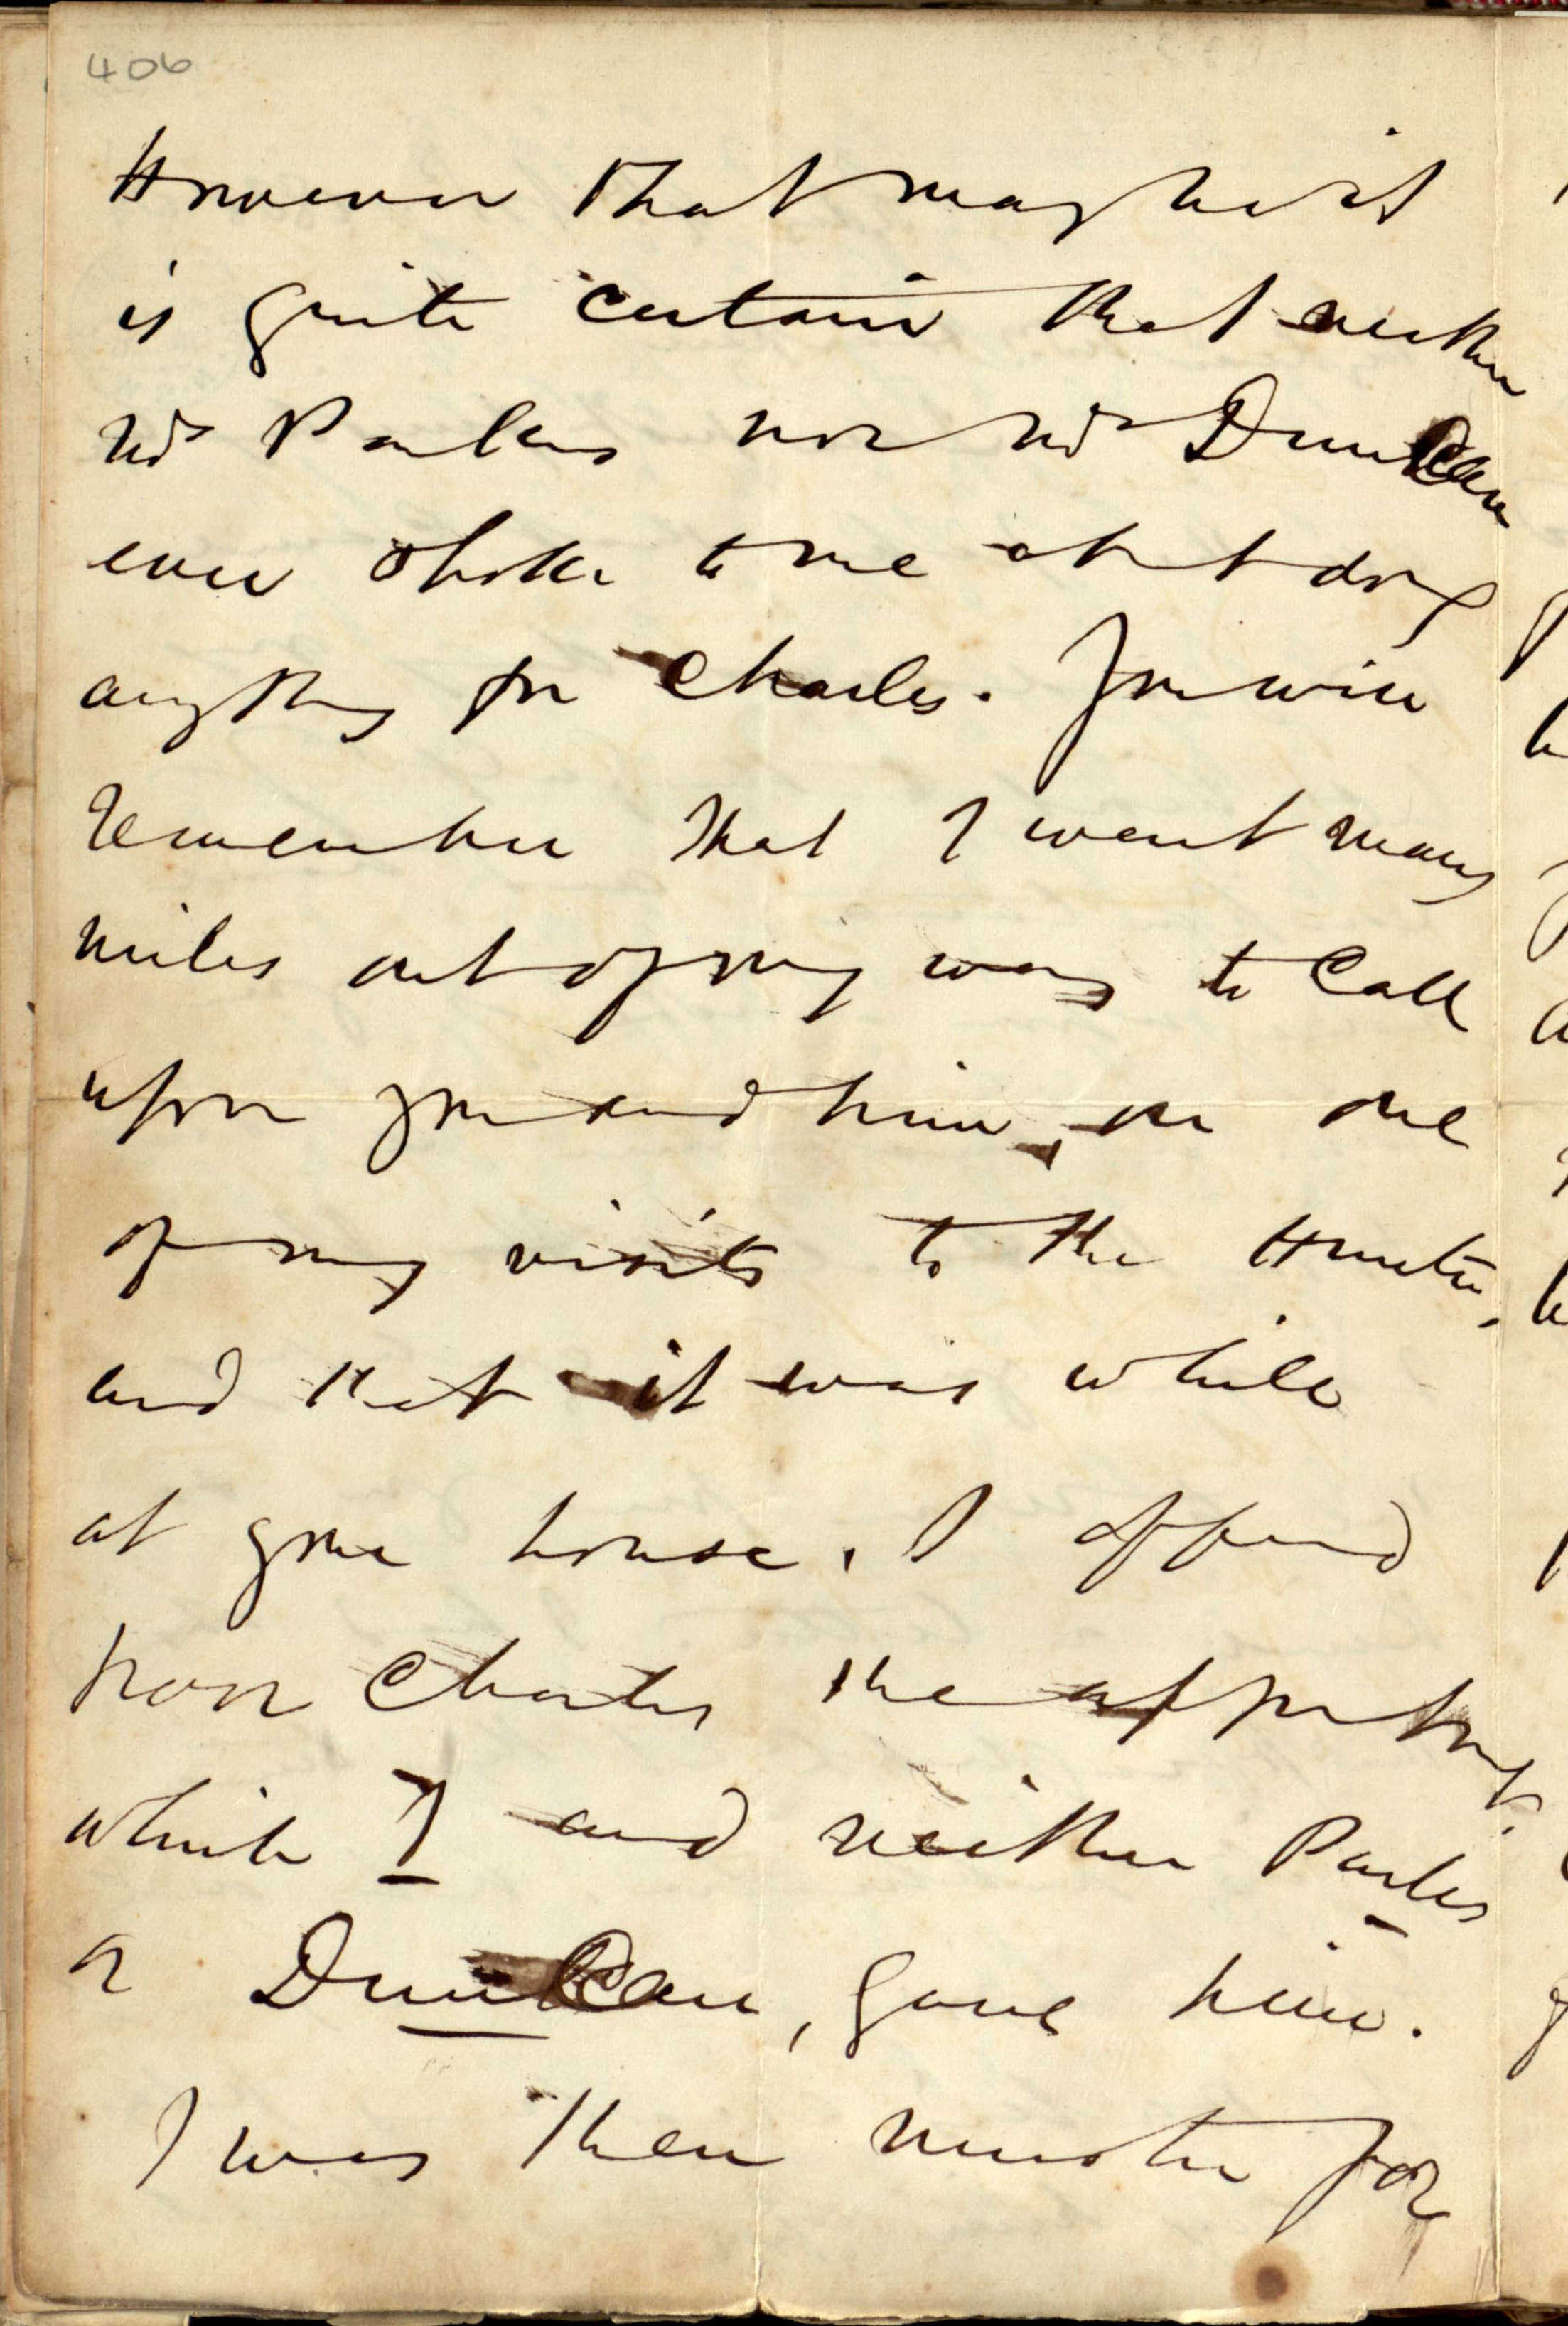 406
However that may be it
is quite certain that neither
Mr Parkes nor Mr Duncan
ever spoke to me abt doing
anything for Charles. You will
remember that I went many
miles out of my way to call
upon you and him, on one
of my visits to the Hunter,
and that it was while
at your house, I offered
poor Charles the apptmt,
which I and neither Parkes
or Duncan, gave him.
I was then minister for